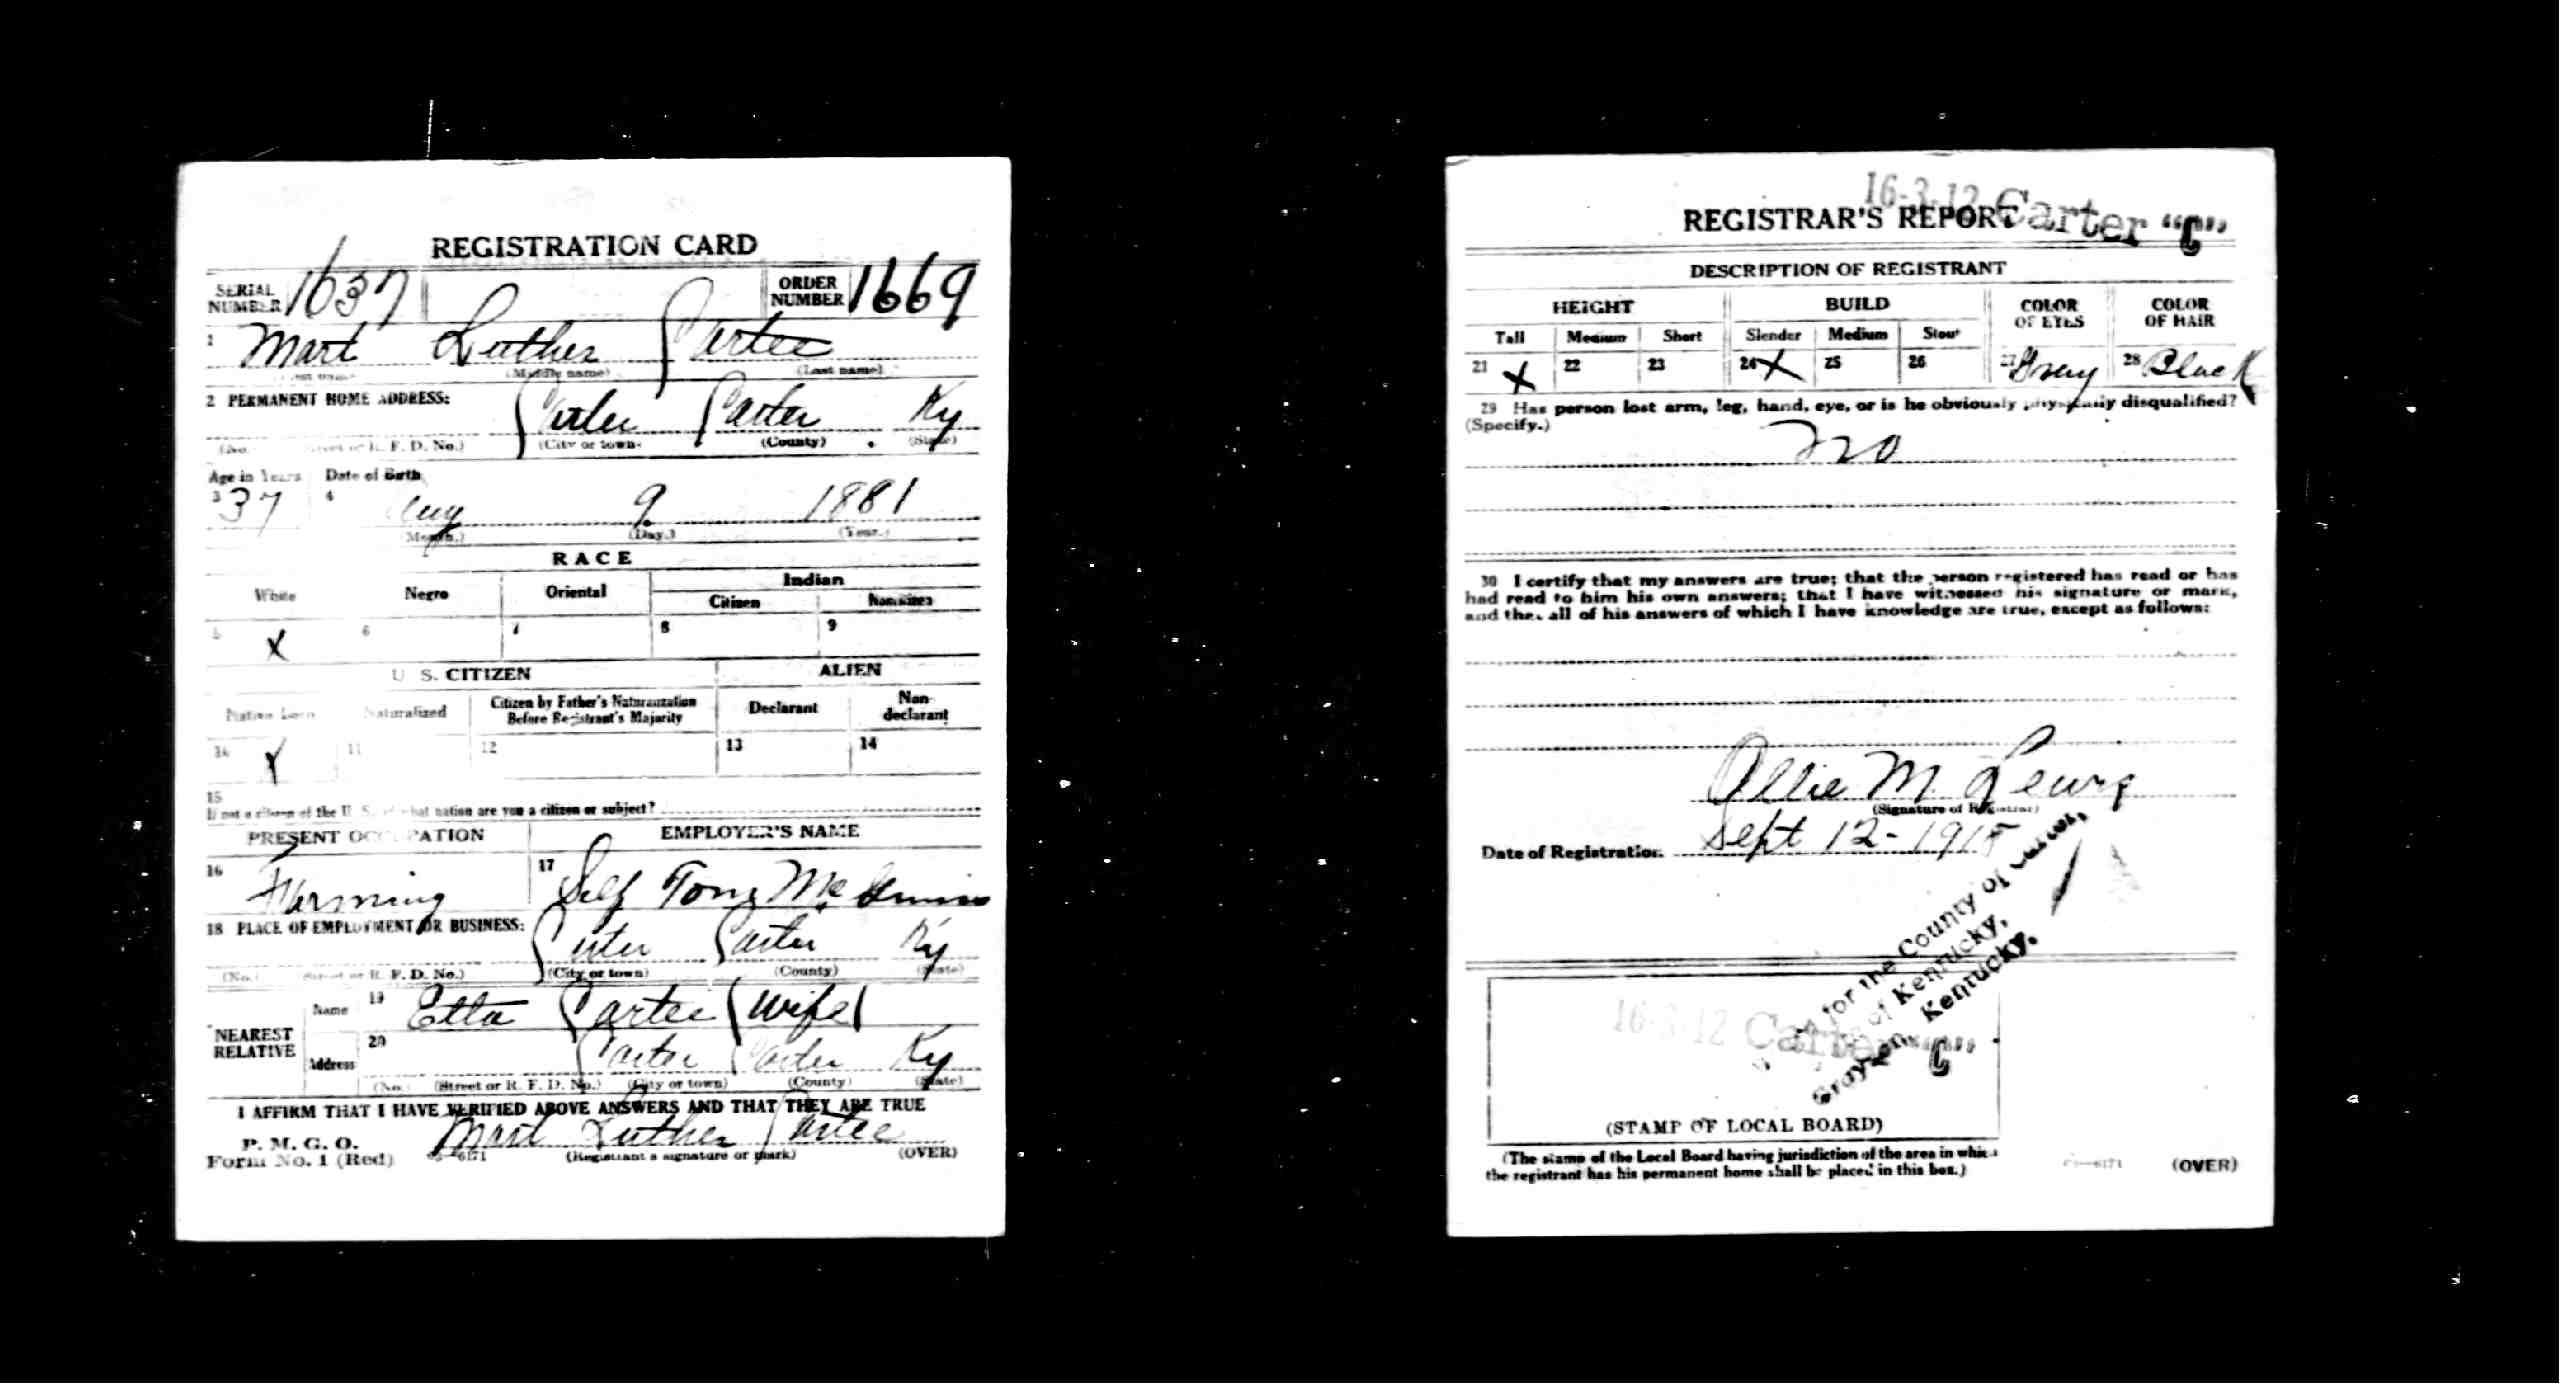 REGISTRATION CARD
SERIAL NUMBER 1637 ORDER NUMBER 1669
1 Mart Luther Cartee
(Middle name) (Last name)
2 PERMANENT HOME ADDRESS:
Carter Carter Ky
(No.) (Street or R. F. D. No.) (City or town) (County) (State)
Age in Years Date of Birth
3 37 4 Aug 9 1881
(Month.) (Day.) (Year.)
RACE
White Negro Oriental Indian
Citizen Noncitizen
5 X 6 7 8 9
U. S. CITIZEN ALIEN
Native Born Naturalized Citizen by Father's Naturalization Before Registrant's Majority Declarant Non-declarant
10 X 11 12 13 14
15
If not a citizen of the U. S., of what nation are you a citizen or subject?
PRESENT OCCUPATION EMPLOYER'S NAME
16 Farming 17 Self Tom Mc
18 PLACE OF EMPLOYMENT OR BUSINESS:
Carter Carter Ky
(No.) (Street or R. F. D. No.) (City or town) (County) (State)
NEAREST RELATIVE
Name 19 Etta Cartee (wife)
Address 20 Carter Carter Ky
(No.) (Street or R. F. D. No.) (City or town) (County) (State)
I AFFIRM THAT I HAVE VERIFIED ABOVE ANSWERS AND THAT THEY ARE TRUE
P. M. G. O.
Form No. 1 (Red) Mart Luther Cartee
(Registrant's signature or mark) (OVER)
16-3-12 Carter "C"
REGISTRAR'S REPORT
DESCRIPTION OF REGISTRANT
HEIGHT BUILD COLOR OF EYES COLOR OF HAIR
Tall Medium Short Slender Medium Stout
21 X 22 23 24 X 25 26 27 Grey 28 Black
29 Has person lost arm, leg, hand, eye, or is he obviously physically disqualified?
(Specify.)
No
30 I certify that my answers are true; that the person registered has read or has
had read to him his own answers; that I have witnessed his signature or mark,
and that all of his answers of which I have knowledge are true, except as follows:
Allie M. Lewis
(Signature of Registrar)
Date of Registration Sept 12 - 1918
for the County of Carter,
of Kentucky,
Grayson, Kentucky.
16-3-12 Carter "C"
(STAMP OF LOCAL BOARD)
(The stamp of the Local Board having jurisdiction of the area in which
the registrant has his permanent home shall be placed in this box.)
(OVER)